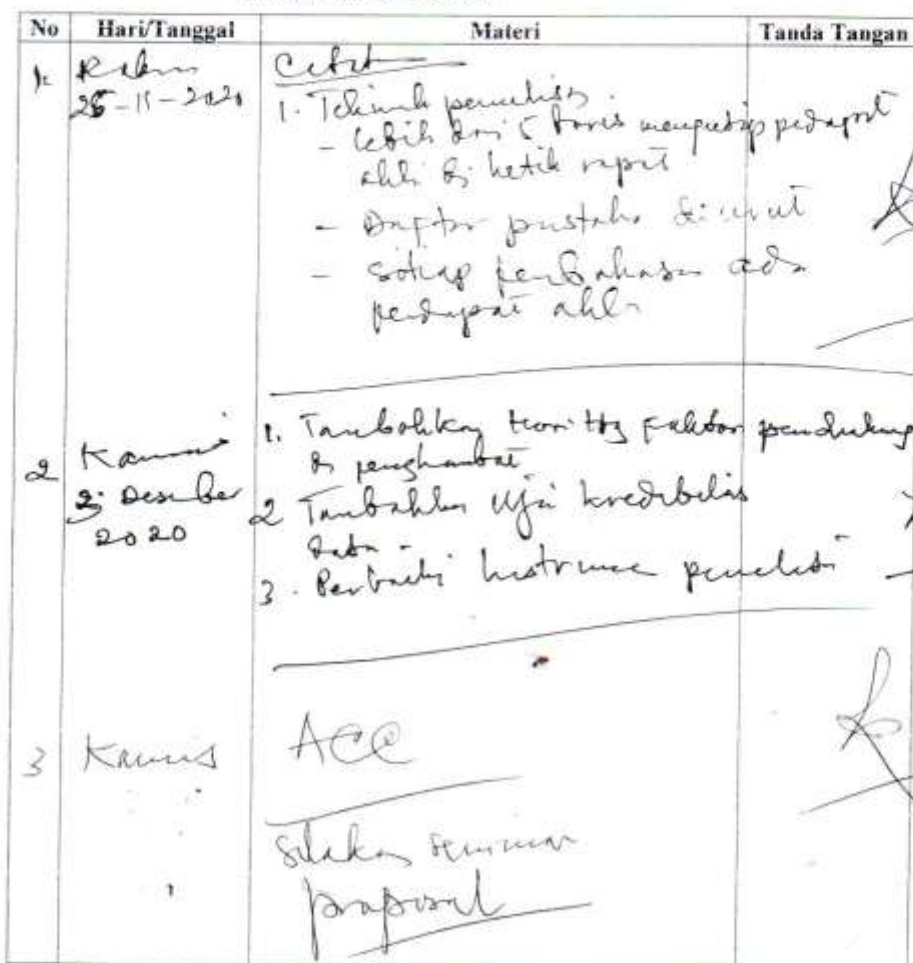 No Hari/Tanggal Materi Tanda Tangan
1. Rabu
25-11-2020
1. Teknik penulisan
- lebih dari 5 baris mengutip pendapat
ahli di ketik rapat
- Daftar pustaka di urut
- setiap pembahasan ada
pendapat ahli
2 Kamis
3 Desember
2020
1. Tambahkan teori ttg faktor pendukung
& penghambat
2 Tambahkan uji kredibilitas
data
3. Perbaiki instrumen penelitian
3 Kamis
ACC
Silakan seminar
proposal